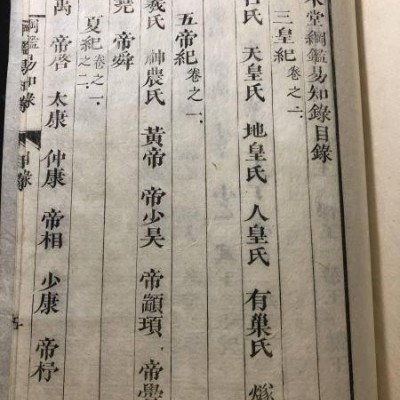 堂綱鑑易知錄目錄
三皇紀 卷之一
氏 天皇氏 地皇氏 人皇氏 有巢氏 燧
五帝紀 卷之一
羲氏 神農氏 黃帝 帝少昊 帝顓頊 帝嚳
堯 帝舜
夏紀 卷之一 之二
禹 帝啓 太康 仲康 帝相 少康 帝杼
綱鑑易知錄 目錄